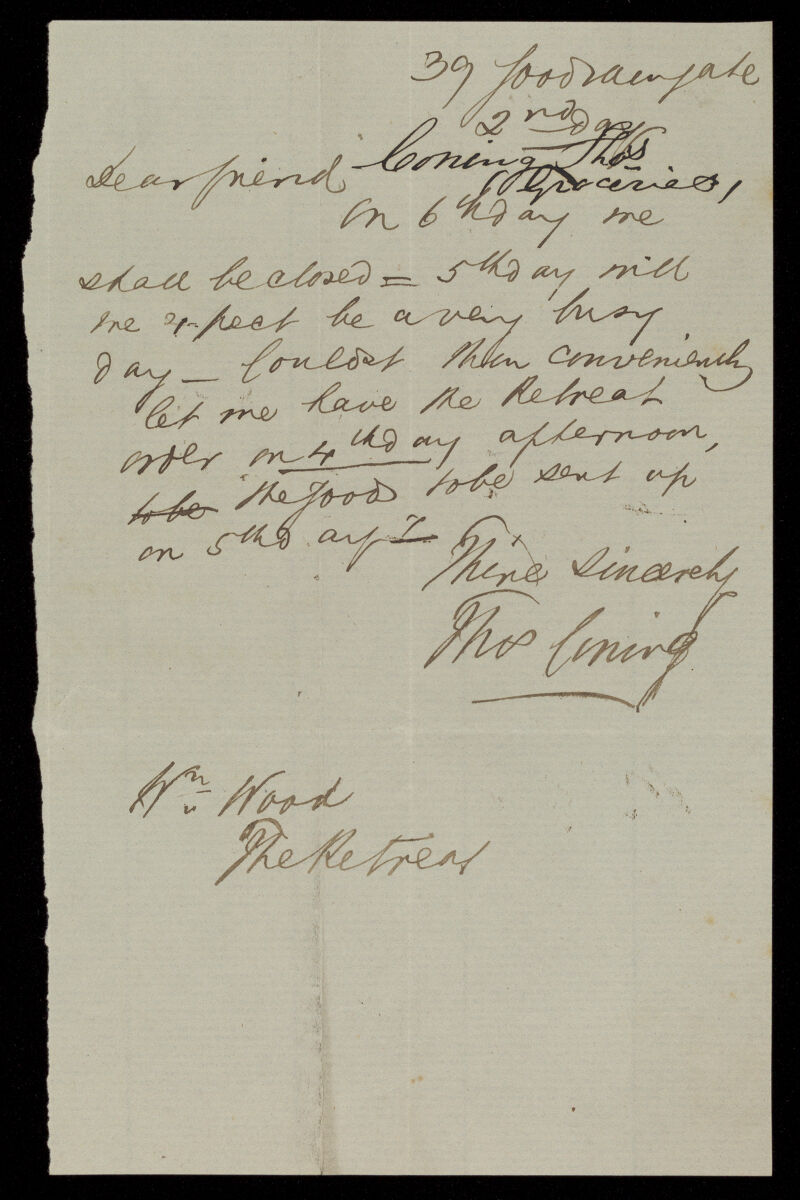 39 Goodramgate
2nd day
Dear friend Coning Thos
Groceries,
On 6th day we
shall be closed = 5th day will
we expect be a very busy
day – Couldst thou conveniently
let me have the Retreat
order on 4th day afternoon,
to be the goods to be sent up
on 5th day?
Thine sincerely
Thos Coning
Wm Wood
The Retreat